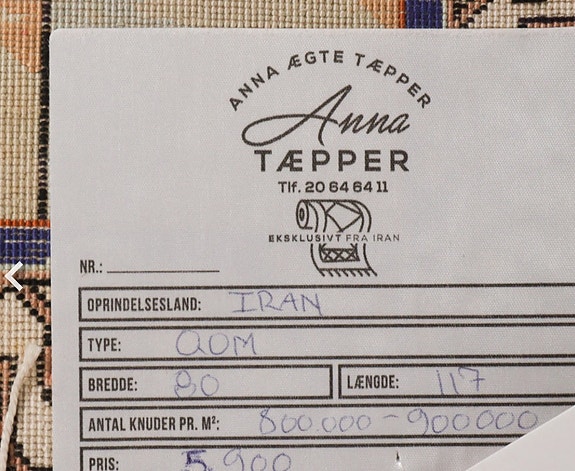 ANNA ÆGTE TÆPPER
Anna
TÆPPER
Tlf. 20 64 64 11
EKSKLUSIVT FRA IRAN
NR.:
OPRINDELSESLAND: IRAN
TYPE: QOM
BREDDE: 80 LÆNGDE: 117
ANTAL KNUDER PR. M²: 800.000 - 900000
PRIS: 5.900